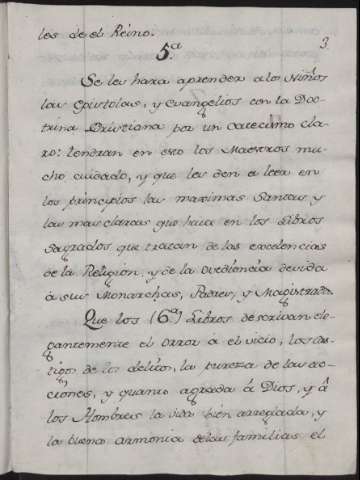 les de el Reino.
5ª
3
Se les hara aprender a los Niños
las Epistolas, y Evangelios con la Doc-
trina Christiana por un Catecismo cla-
ro: tendran en esto los Maestros mu-
cho cuidado, y que les den a leer en
los principios las maximas Santas y
las mas claras que haia en los Libros
Sagrados que tratan de las excelencias
de la Religion, y de la ovediencia devida
á sus Monarchas, Padres, y Magistrados.
Que los (6ª) Libros descrivan ele-
gantemente el orror a el vicio, los cas-
tigos de los delitos, la pureza de las ac-
ciones, y quanto agrada á Dios, y á
los Hombres la vida bien arreglada, y
la buena armonia de las familias el